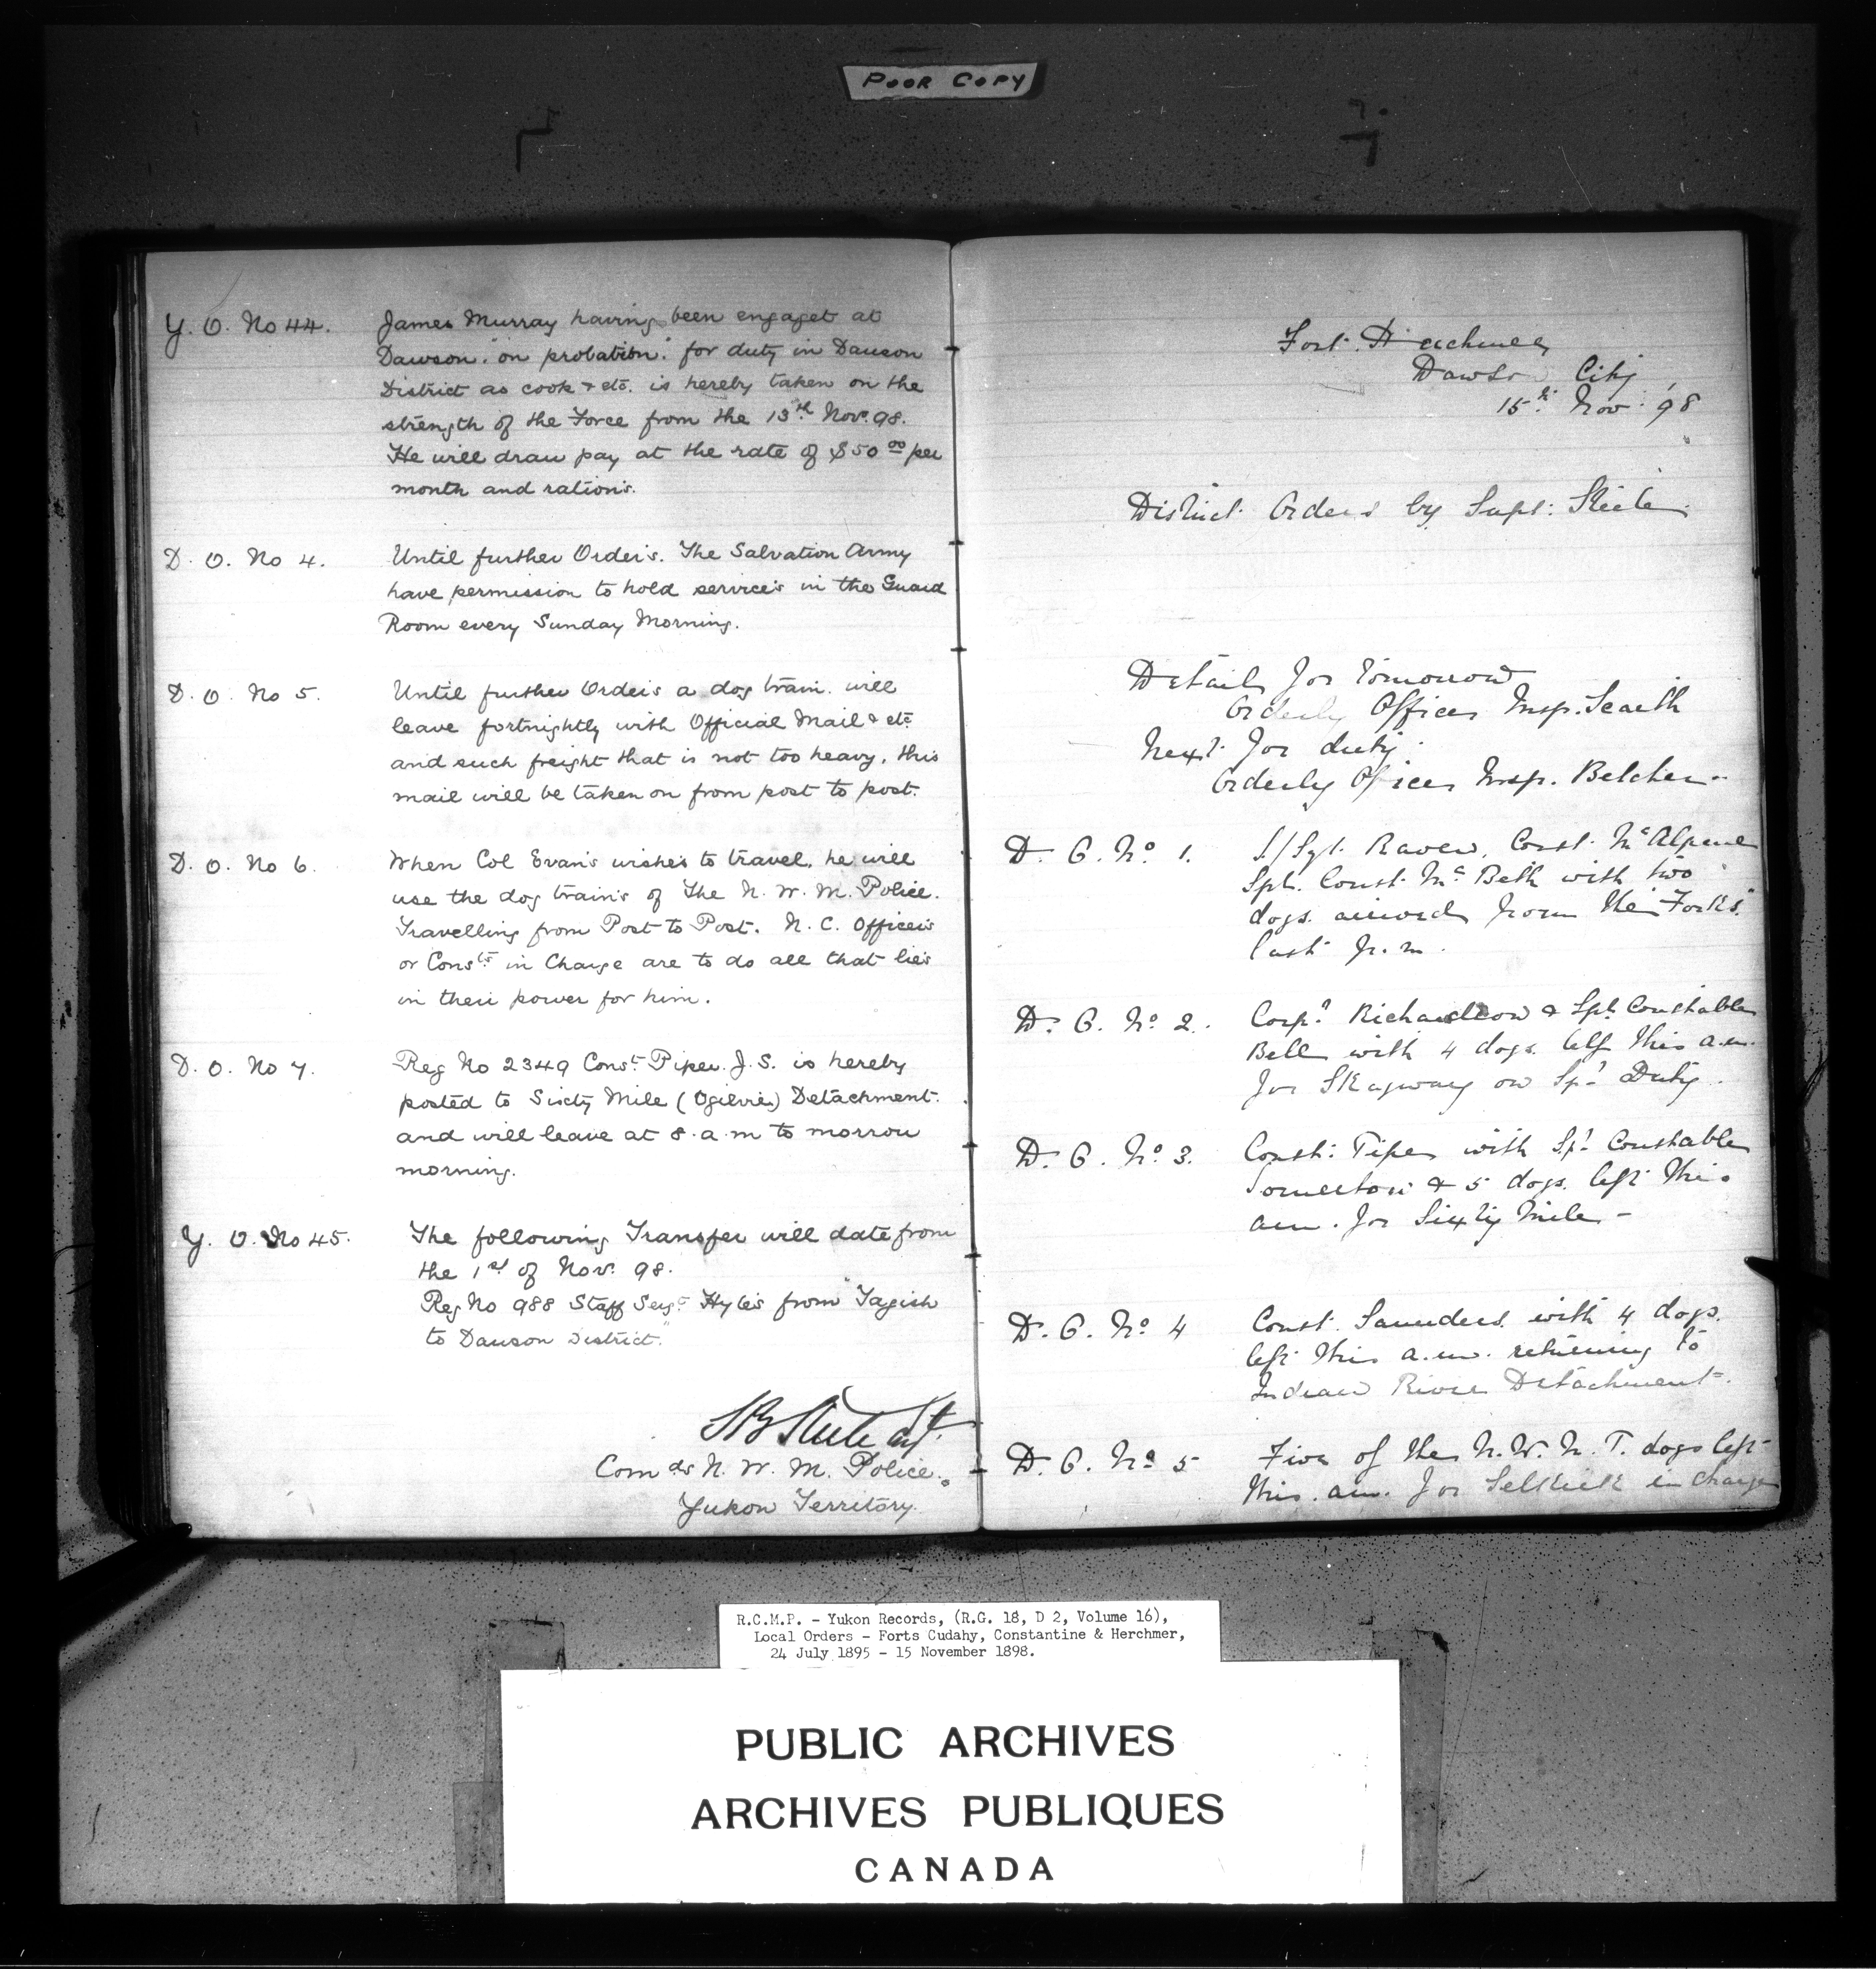 POOR COPY
Y. O. No 44. James Murray having been engaget at
Dawson "on probation" for duty in Dawson
District as cook & etc. is hereby taken on the
strength of the Force from the 13th Nov. 98.
He will draw pay at the rate of $50 00 per
month and rations.
D. O. No 4. Until further Orders. The Salvation Army
have permission to hold services in the Guard
Room every Sunday Morning.
D. O. No 5. Until further Orders a dog train. will
leave fortnightly with Official Mail & etc
and such freight that is not too heavy, this
mail will be taken on from post to post.
D. O. No 6. When Col Evans wishes to travel, he will
use the dog trains of the N. W. M. Police.
Travelling from Post to Post. N. C. Officers
or Consts in Charge are to do all that lies
in their power for him.
D. O. No 7. Reg No 2349 Const. Piper. J. S. is hereby
posted to Sixty Mile (Ogilvie) Detachment.
and will leave at 8. a.m to morrow
morning.
Y. O. No 45. The following Transfer will date from
the 1st of Nov. 98.
Reg No 988 Staff Sergt Hyles from "Tagish
to Dawson District."
SB Steele Supt.
Com dr N. W. M. Police.
Yukon Territory.
Fort Herchmer
Dawson City
15th Nov. '98
District Orders by Supt. Steele.
Detail for tomorrow
Orderly Officer Insp. Scarth
Next for duty
Orderly Officer Insp. Belcher
D. O. No 1. S/Sgt. Raven, Const. McAlpine
Spl. Const. McBeth with two
dogs. arrived from the "Forks"
last p.m.
D. O. No 2. Corpl Richardson & Spl. Constable
Bell with 4 dogs. left this a.m.
for Skagway on Spl Duty.
D. O. No 3. Const. Piper with Spl Constable
Somerton & 5 dogs. left this
am. for Sixty Mile -
D. O. No 4 Const. Saunders. with 4 dogs.
left this a.m. returning to
Indian River Detachment.
D. O. No 5 Five of the N. W. M. P. dogs left
this. am. for Selkirk in charge
R.C.M.P. - Yukon Records, (R.G. 18, D 2, Volume 16),
Local Orders - Forts Cudahy, Constantine & Herchmer,
24 July 1895 - 15 November 1898.
PUBLIC ARCHIVES
ARCHIVES PUBLIQUES
CANADA